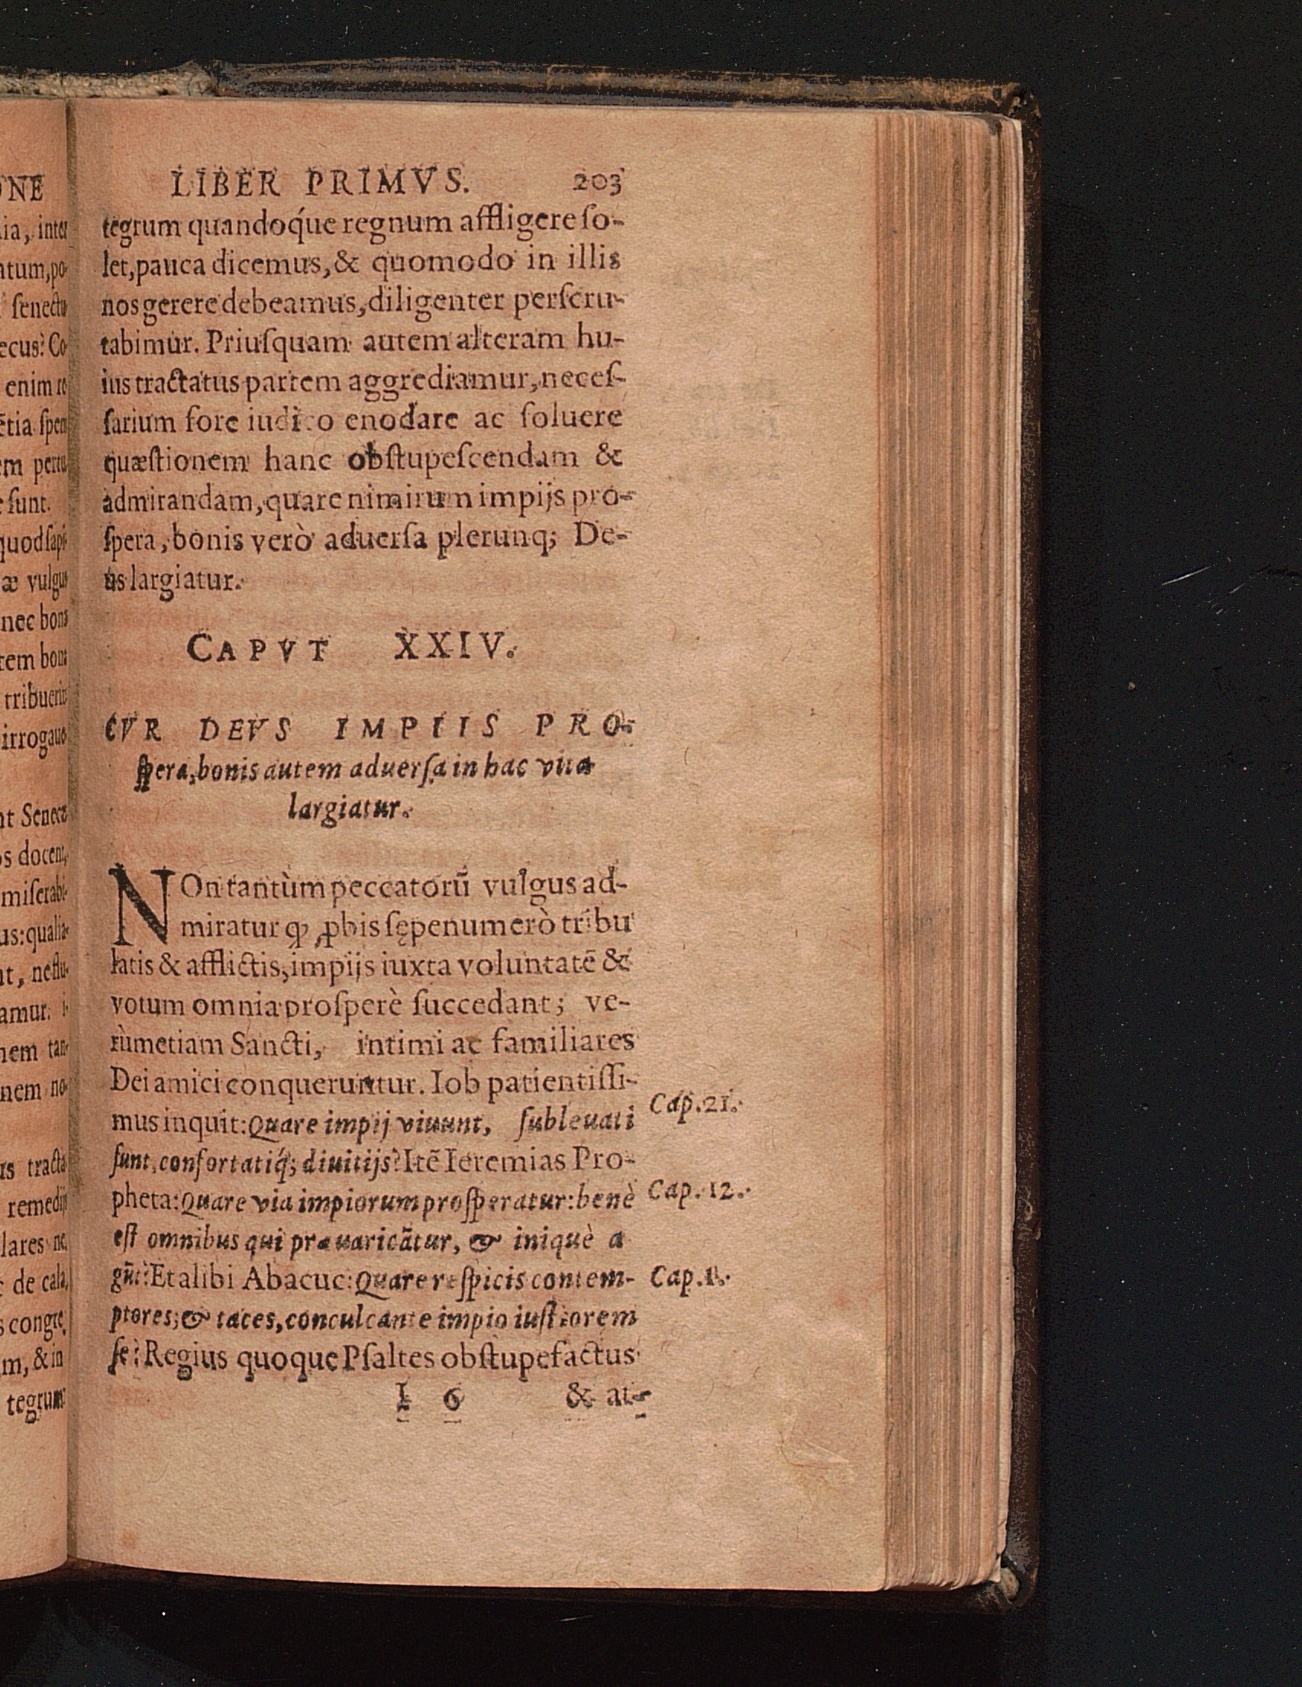 LIBER PRIMVS. 203
tegrum quandoq́ue regnum affligere ſo-
let, pauca dicemus, & quomodo in illis
nos gerere debeamus, diligenter perſcru-
tabimur. Priuſquam autem alteram hu-
ius tractatus partem aggrediamur, neceſ-
ſarium fore iudico enodare ac ſoluere
quæſtionem hanc obſtupeſcendam &
admirandam, quare nimirum impijs pro-
ſpera, bonis verò aduerſa plerunq; De-
us largiatur.
CAPVT XXIV.
CVR DEVS IMPIIS PRO-
ſpera, bonis autem aduerſa in hac vita
largiatur.
NOn tantùm peccatorũ vulgus ad-
miratur ꝙ ꝓbis ſępenumerò tribu
latis & afflictis, impijs iuxta voluntatẽ &
votum omnia proſperè ſuccedant; ve-
rùmetiam Sancti, intimi ac familiares
Dei amici conqueruntur. Iob patientiſſi-
mus inquit: Quare impij viuunt, ſubleuati
ſunt, confortatiq́; diuitijs? Itẽ Ieremias Pro-
pheta: Quare via impiorum proſperatur: benè
eſt omnibus qui præuaricãtur, & iniquè a
gũt? Et alibi Abacuc: Quare reſpicis contem-
ptores; & taces, conculcante impio iuſtiorem
ſe? Regius quoque Pſaltes obſtupefactus
I 6 & at-
Cap. 21.
Cap. 12.
Cap. 1.
ONE
ia, inter
tum, po-
ſenectu
ecus? Co
enim re
ẽtia ſpen
ſunt.
æ vulgus
nec bona
tem bona
irrogauo
nt Seneca
os docent,
miſerabi-
us: qualia-
amur. i-
nem tan-
nem no-
remedij
lares ne
de cala
m, & in
tegrum